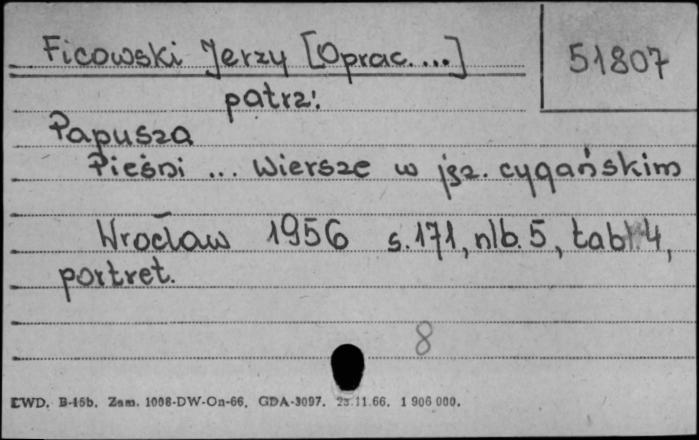 Ficowski Jerzy [Oprac. ...]
51807
patrz:
Papusza
Pieśni ... Wiersze w jęz. cygańskim
Wrocław 1956 s. 171, nlb. 5, tabl. 4,
portret.
8
LWD. B-45b. Zam. 1008-DW-On-66. GDA-3097. 23.11.66. 1 906 000.